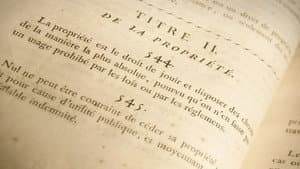 TITRE II.
DE LA PROPRIÉTÉ.
544.
La propriété est le droit de jouir et disposer des choses
de la manière la plus absolue, pourvu qu'on n'en fasse pas
un usage prohibé par les lois ou par les réglemens.
545.
Nul ne peut être contraint de céder sa propriété
pour cause d'utilité publique, et moyennant
indemnité.
Le
cas o